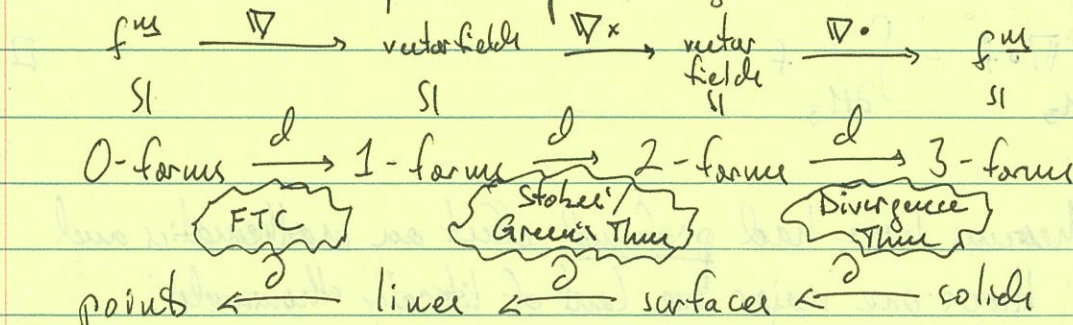 fⁿˢ ∇→ vector fields ∇×→ vector fields ∇•→ fⁿˢ
S| S| S| S|
0-forms d→ 1-forms d→ 2-forms d→ 3-forms
FTC Stokes'/ Green's Thm Divergence Thm
points ←∂ lines ←∂ surfaces ←∂ solids